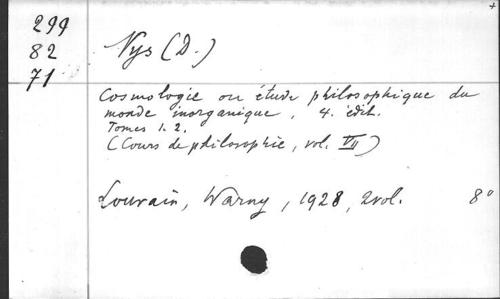 +
299
82
71
Nys (D.)
Cosmologie ou étude philosophique du
monde inorganique, 4. édit.
Tomes 1. 2.
(Cours de philosophie, vol. VII)
Louvain, Warny, 1928, 2 vol. 8°